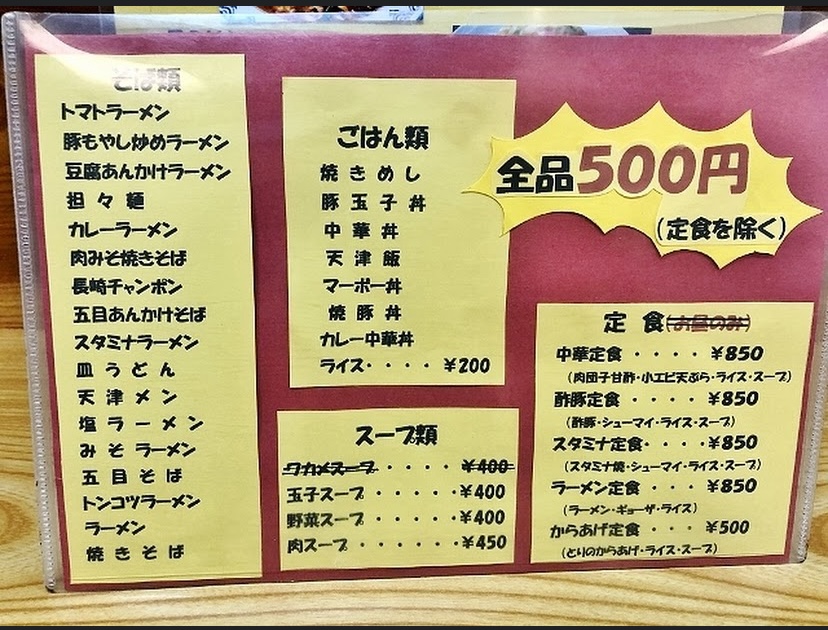 そば類
トマトラーメン
豚もやし炒めラーメン
豆腐あんかけラーメン
担々麺
カレーラーメン
肉みそ焼きそば
長崎チャンポン
五目あんかけそば
スタミナラーメン
皿うどん
天津メン
塩ラーメン
みそラーメン
五目そば
トンコツラーメン
ラーメン
焼きそば
ごはん類
焼きめし
豚玉子丼
中華丼
天津飯
マーボー丼
焼豚丼
カレー中華丼
ライス・・・・¥200
スープ類
ワカメスープ・・・・¥400
玉子スープ・・・・・¥400
野菜スープ・・・・・¥400
肉スープ・・・・・・¥450
全品500円
(定食を除く)
定食(お昼のみ)
中華定食・・・・¥850
(肉団子甘酢・小エビ天ぷら・ライス・スープ)
酢豚定食・・・・¥850
(酢豚・シューマイ・ライス・スープ)
スタミナ定食・・・・¥850
(スタミナ焼・シューマイ・ライス・スープ)
ラーメン定食・・・¥850
(ラーメン・ギョーザ・ライス)
からあげ定食・・・¥500
(とりのからあげ・ライス・スープ)